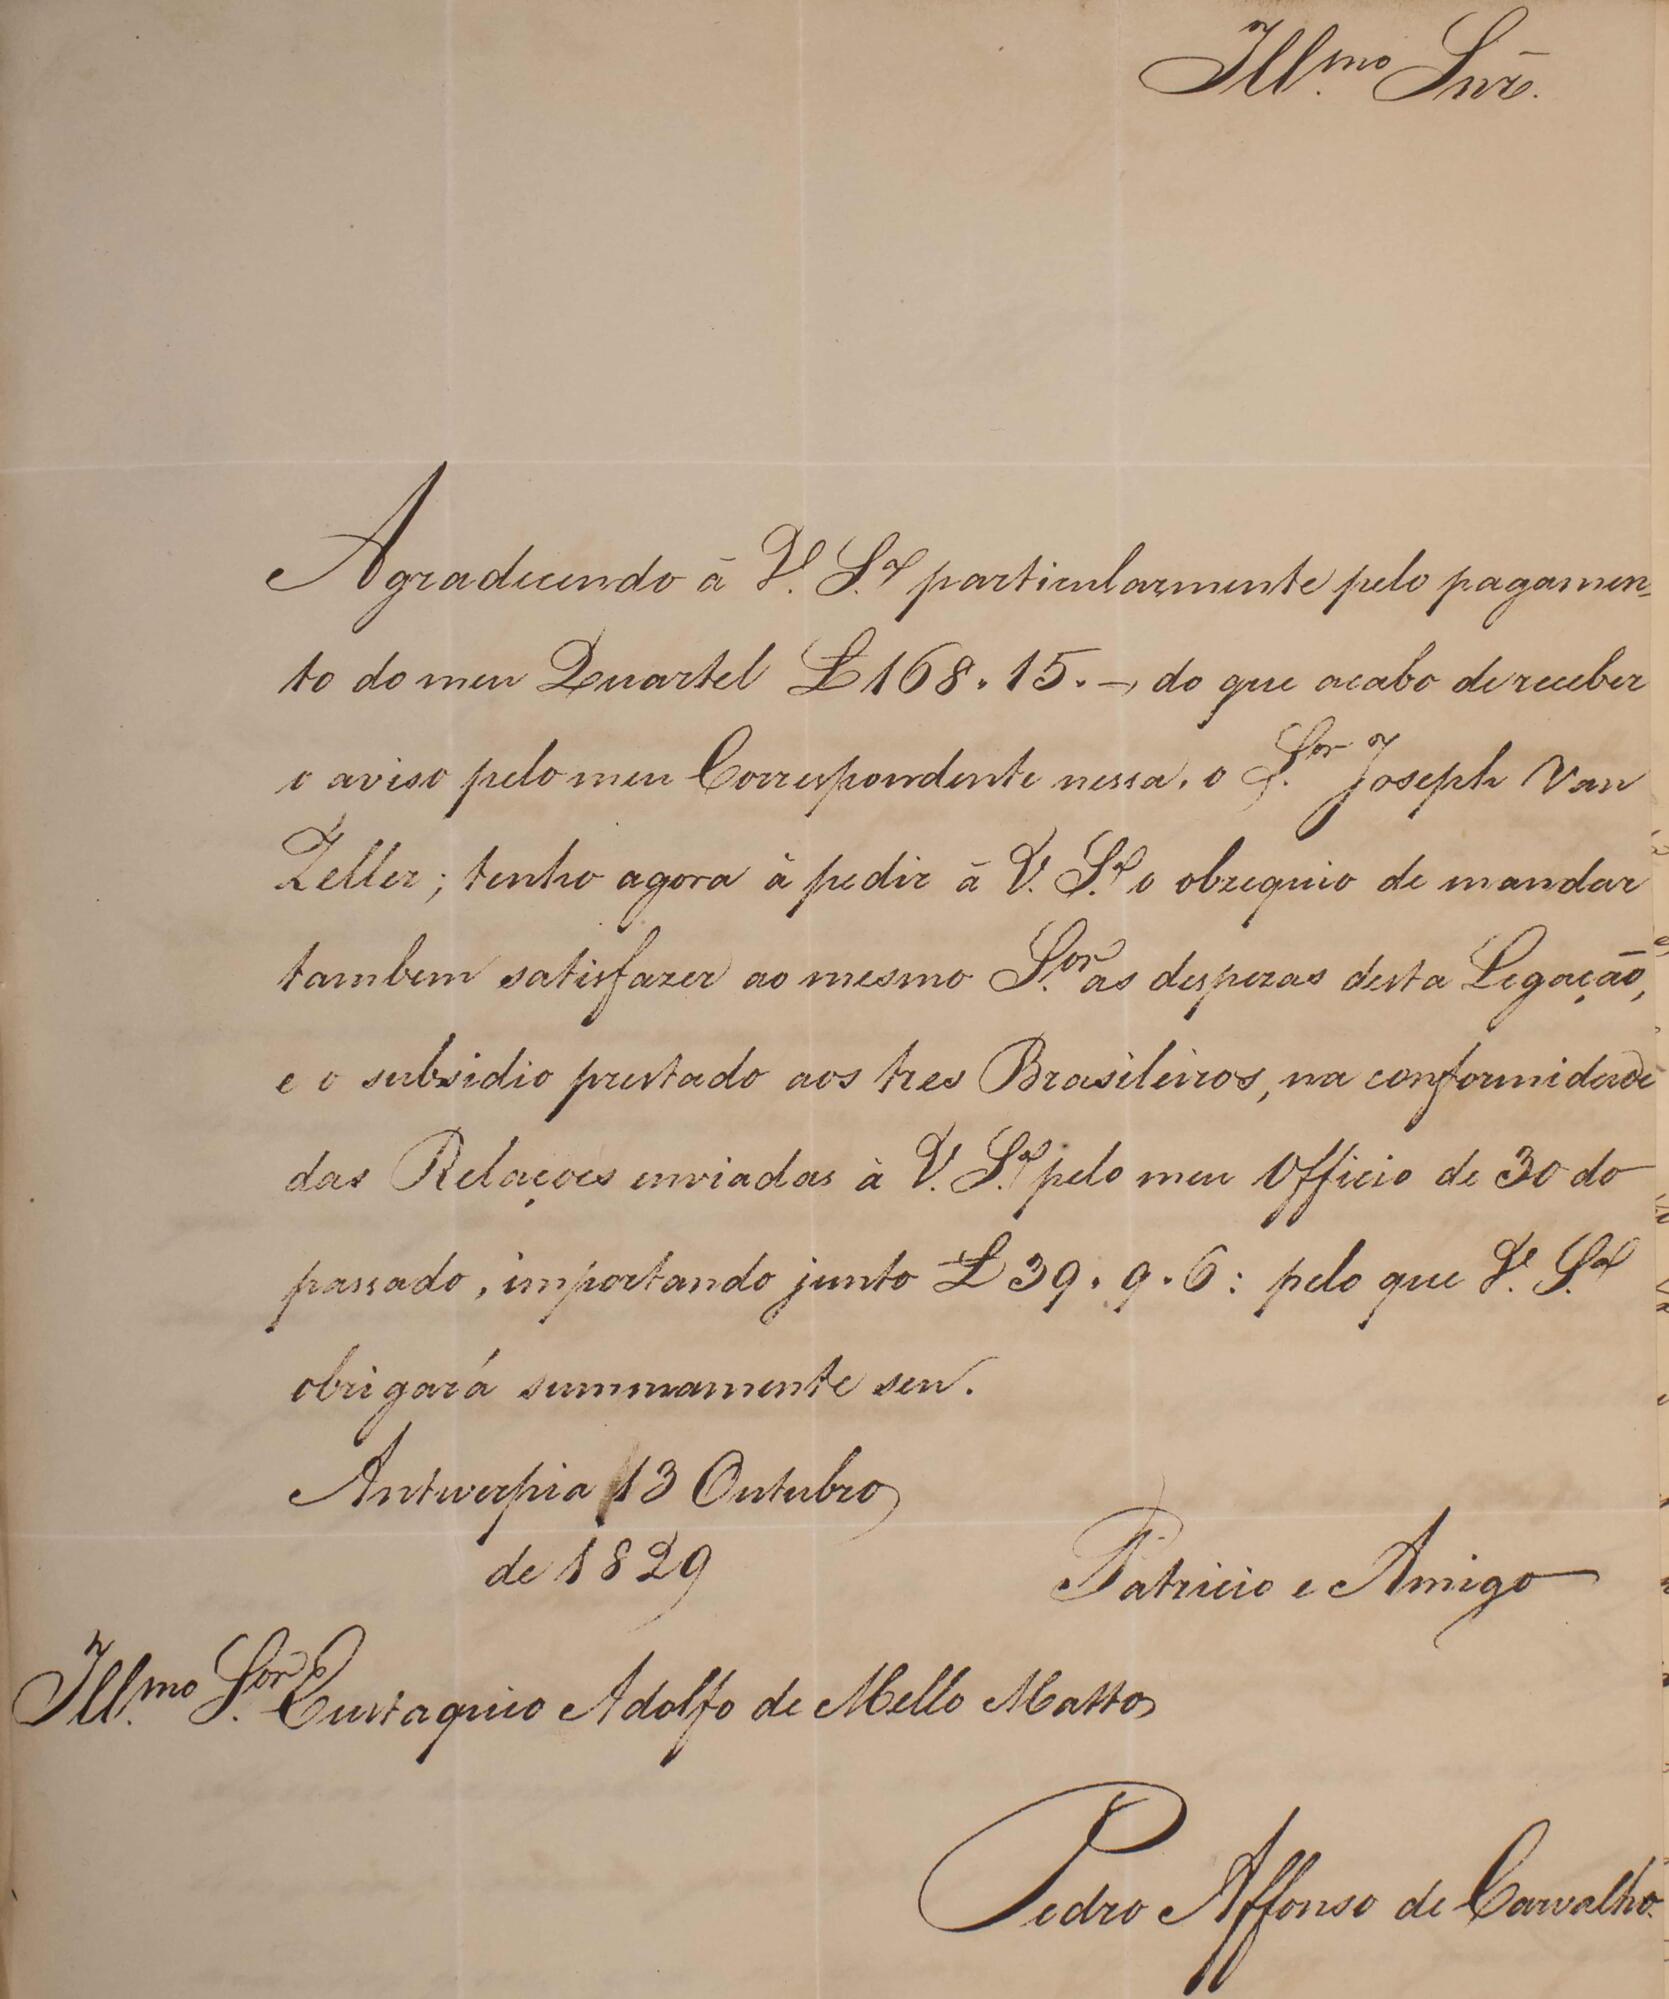 Ill.mo Snr̃.
Agradecendo ā V. S.ª particularmente pelo pagamen-
to do meu Quartel £168.15.–, do que acabo de receber
o aviso pelo meu Correspondente nessa, o S.or Joseph Van
Zeller; tenho agora à pedir ā V. S.ª o obzequio de mandar
tambem satisfazer ao mesmo S.or as despezas desta Legação,
e o subsidio prestado aos tres Brasileiros, na conformidade
das Relaçoes enviadas à V. S.ª pelo meu Officio de 30 do
passado, importando junto £39.9.6: pelo que V. S.ª
obrigará summamente seu.
Antwerpia 13 Outubro
de 1829
Patricio e Amigo
Ill.mo S.or Eustaquio Adolfo de Mello Mattos
Pedro Affonso de Carvalho.